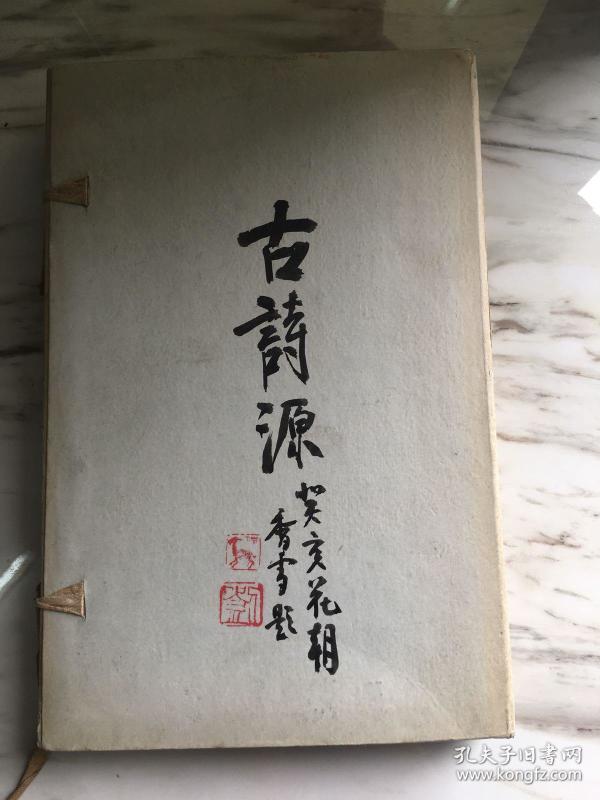 古詩源
癸亥花朝
香雪題
孔夫子旧书网
www.kongfz.com